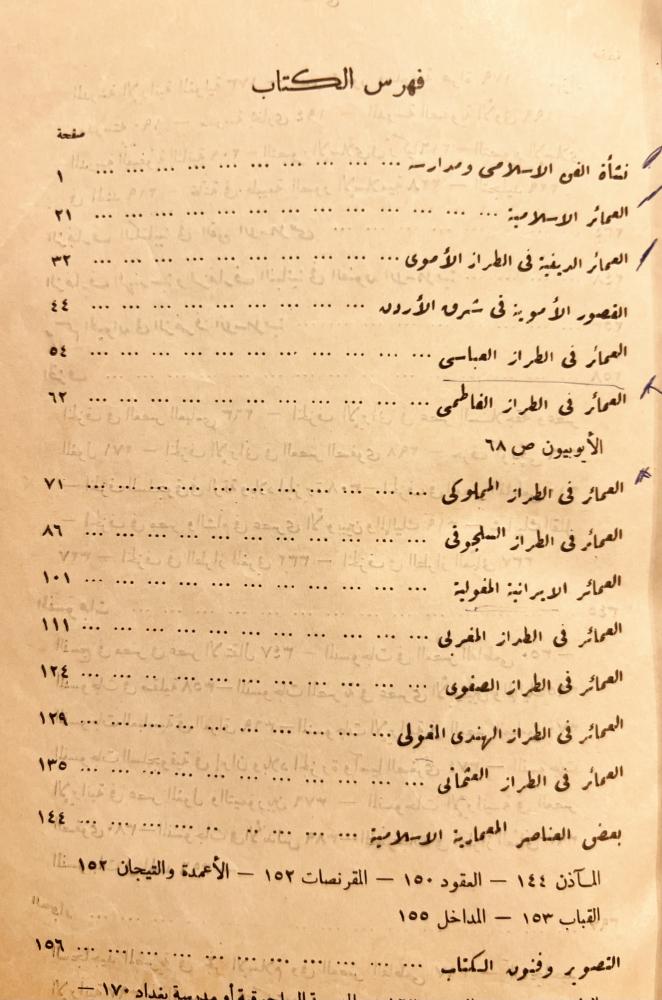 فهرس الكتاب
صفحة
نشأة الفن الاسلامى ومدارسه ... ... ... ... ... ... ... ... ... ... ١
العمائر الاسلامية ... ... ... ... ... ... ... ... ... ... ... ... ٢١
العمائر الريفية فى الطراز الأموى ... ... ... ... ... ... ... ... ... ٣٢
القصور الأموية فى شرق الأردن ... ... ... ... ... ... ... ... ٤٤
العمائر فى الطراز العباسى ... ... ... ... ... ... ... ... ... ٥٤
العمائر فى الطراز الفاطمى ... ... ... ... ... ... ... ... ... ٦٢
الأيوبيون ص ٦٨
العمائر فى الطراز المملوكى ... ... ... ... ... ... ... ... ... ٧١
العمائر فى الطراز السلجوقى ... ... ... ... ... ... ... ... ... ٨٦
العمائر الايرانية المغولية ... ... ... ... ... ... ... ... ... ١٠١
العمائر فى الطراز المغربى ... ... ... ... ... ... ... ... ... ١١١
العمائر فى الطراز الصفوى ... ... ... ... ... ... ... ... ... ١٢٤
العمائر فى الطراز الهندى المغولى ... ... ... ... ... ... ... ... ١٢٩
العمائر فى الطراز العثمانى ... ... ... ... ... ... ... ... ... ١٣٥
بعض العناصر المعمارية الاسلامية ... ... ... ... ... ... ... ... ١٤٤
المآذن ١٤٤ — العقود ١٥٠ — المقرنصات ١٥٢ — الأعمدة والتيجان ١٥٢
القباب ١٥٣ — المداخل ١٥٥
التصوير وفنون الكتاب ... ... ... ... ... ... ... ... ... ١٥٦
أو مدرسة بغداد ١٧٠ —